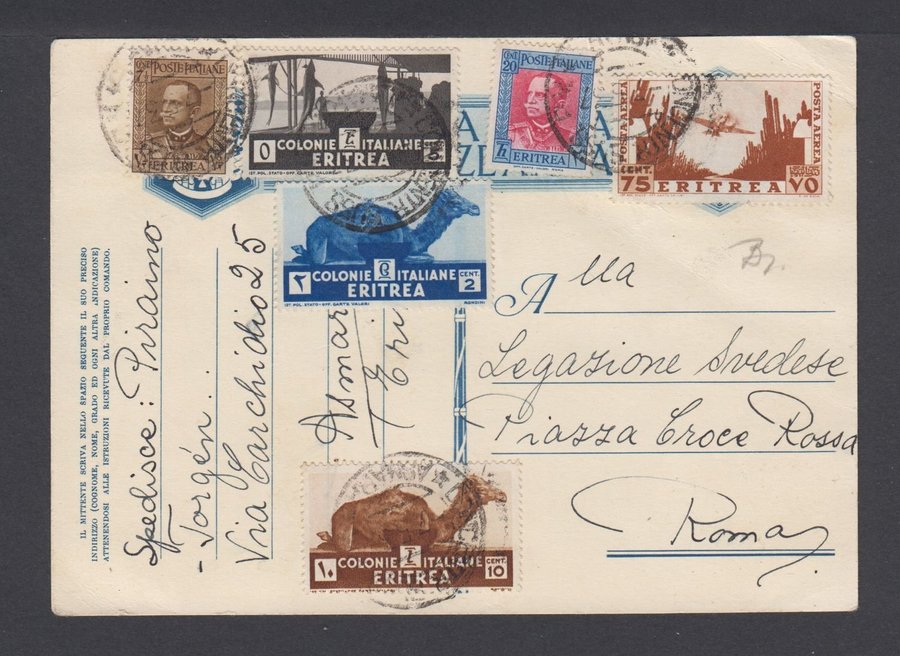 CENT. 7½ POSTE ITALIANE
ERITREA
COLONIE ITALIANE
ERITREA
CENT 20 POSTE ITALIANE
ERITREA
POSTA AEREA
POSTA AEREA
CENT. 75 ERITREA ٧٥
٢ COLONIE ITALIANE CENT. 2
ERITREA
IST. POL. STATO - OFF. CARTE VALORI RONDINI
IL MITTENTE SCRIVA NELLO SPAZIO SEGUENTE IL SUO PRECISO
INDIRIZZO (COGNOME, NOME, GRADO ED OGNI ALTRA INDICAZIONE)
ATTENENDOSI ALLE ISTRUZIONI RICEVUTE DAL PROPRIO COMANDO.
Spedisce: Piraino
Jorgén.
Via Carchidio 25
Asmar
Eri
Alla
Legazione Svedese
Piazza Croce Rossa
Roma
١٠ COLONIE ITALIANE CENT. 10
ERITREA